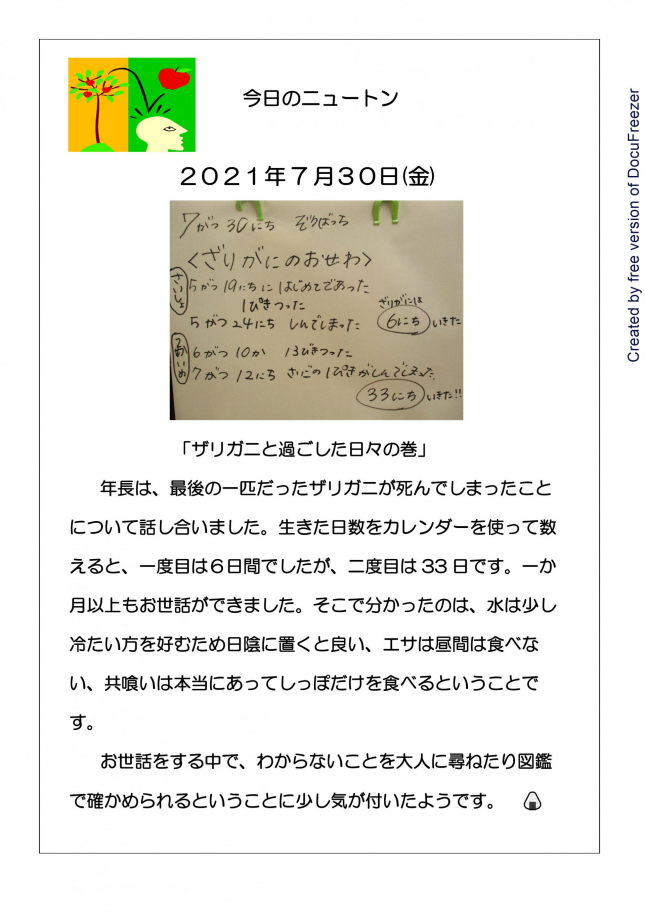 今日のニュートン
２０２１年７月３０日(金)
7がつ 30にち ぞうばっち
〈ざりがにのおせわ〉
さいしょ
5がつ 19にちに はじめてであった
1ぴきつった
ざりがには
5がつ 24にち しんでしまった 6にち いきた
2かいめ
6がつ 10か 13びきつった
7がつ 12にち さいごの1ぴきがしんでしまった
33にち いきた!!
「ザリガニと過ごした日々の巻」
年長は、最後の一匹だったザリガニが死んでしまったこと
について話し合いました。生きた日数をカレンダーを使って数
えると、一度目は６日間でしたが、二度目は 33 日です。一か
月以上もお世話ができました。そこで分かったのは、水は少し
冷たい方を好むため日陰に置くと良い、エサは昼間は食べな
い、共喰いは本当にあってしっぽだけを食べるということで
す。
お世話をする中で、わからないことを大人に尋ねたり図鑑
で確かめられるということに少し気が付いたようです。 🍙
Created by free version of DocuFreezer